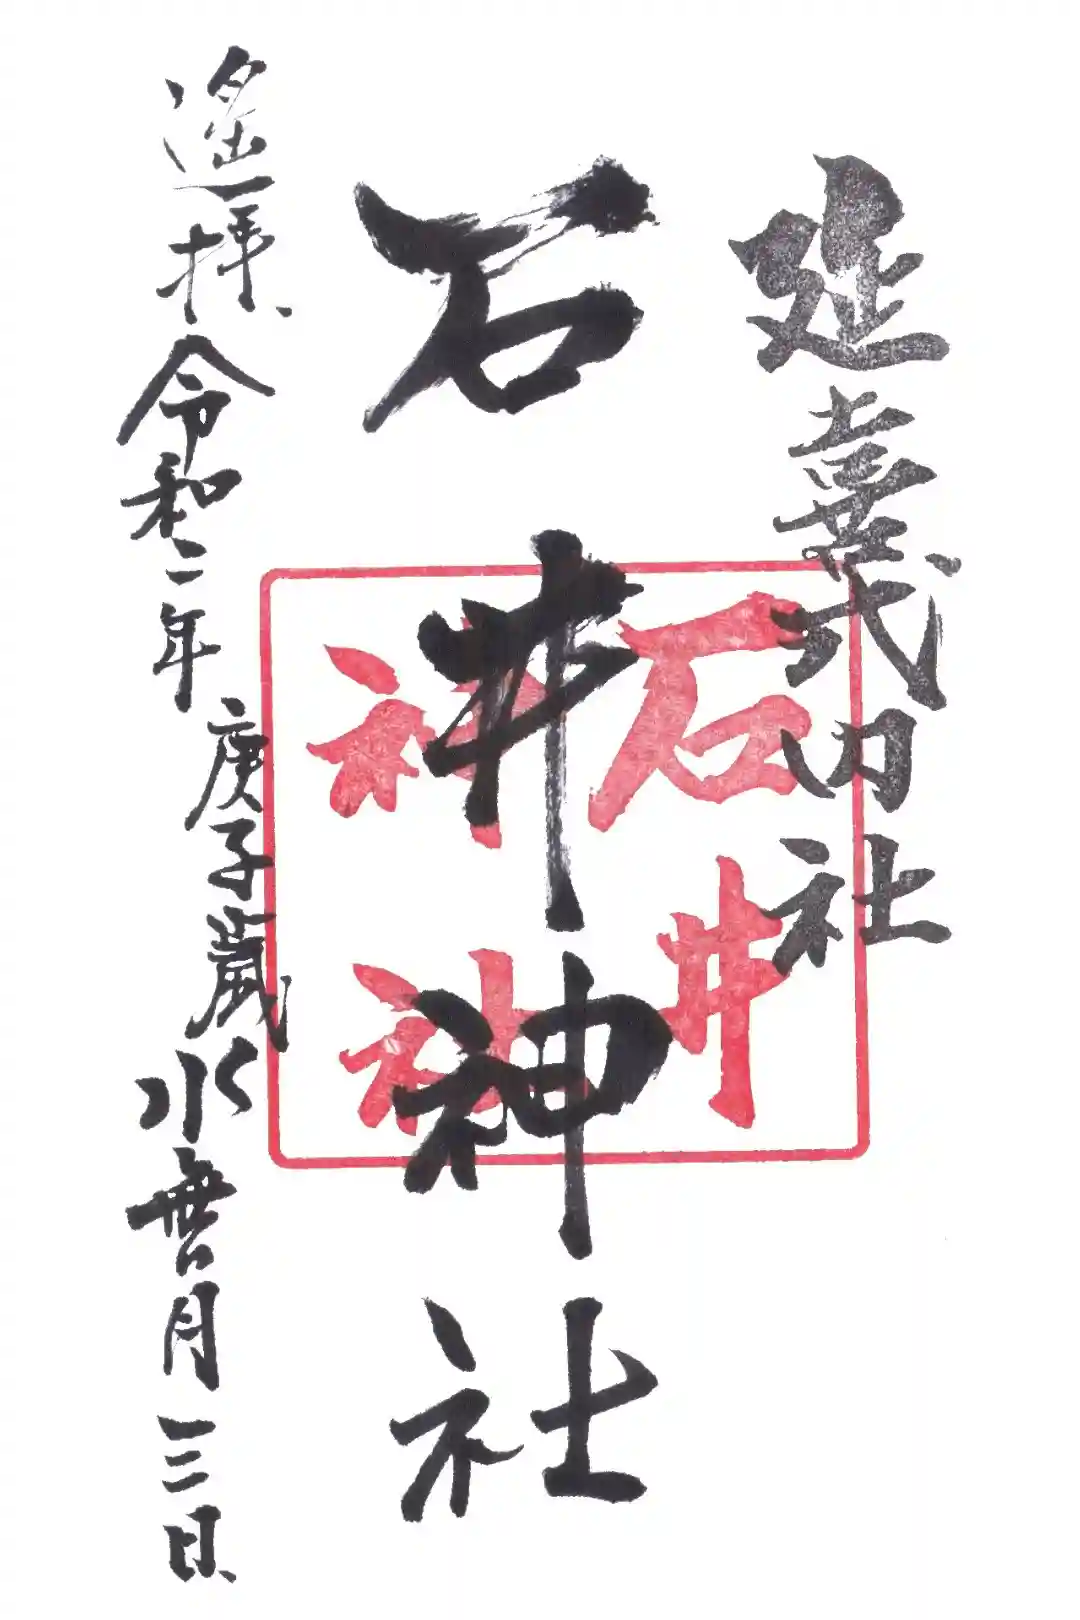 延喜式内社
石井神社
石井
神社
遥拝
令和二年
庚子歳
水無月三日